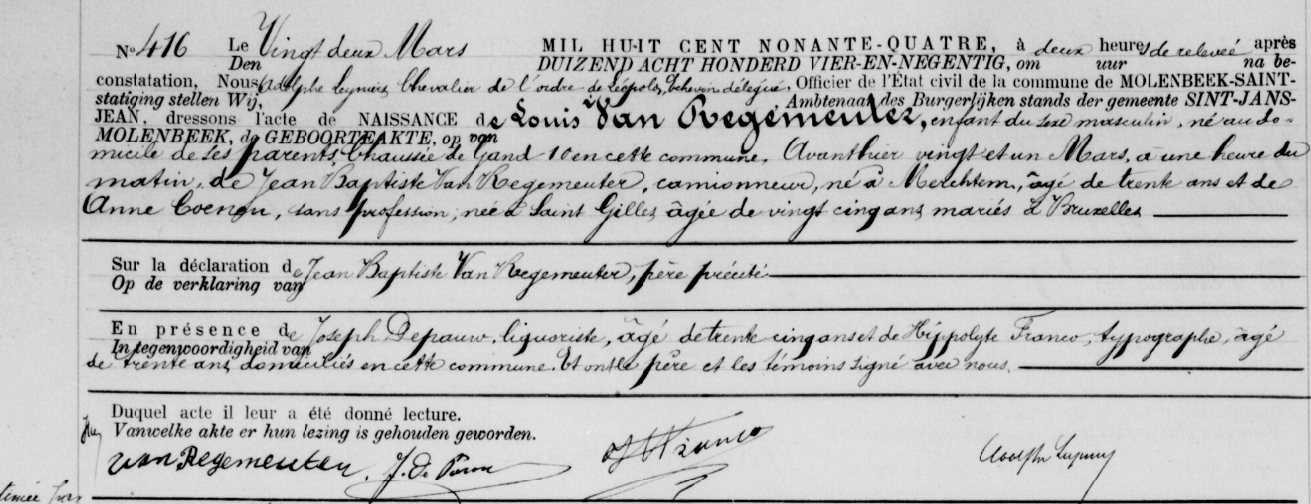 No 416 Le Vingt deux Mars MIL HUIT CENT NONANTE-QUATRE, à deux heures de relevée après
Den DUIZEND ACHT HONDERD VIER-EN-NEGENTIG, om uur na be-
constatation, Nous Adolphe Leynier, Chevalier de l'ordre de Léopold, Echevin délégué, Officier de l'État civil de la commune de MOLENBEEK-SAINT-
statiging stellen Wij, Ambtenaar des Burgerlijken stands der gemeente SINT-JANS-
JEAN, dressons l'acte de NAISSANCE de Louis Van Regemeuter, enfant du sexe masculin, né au do-
MOLENBEEK, de GEBOORTEAKTE, op van
micile de ses parents, Chaussée de Gand 10 en cette commune. Avant hier vingt et un Mars, à une heure du
matin, de Jean Baptiste Van Regemeuter, camionneur, né à Merchtem, âgé de trente ans et de
Anne Coenen, sans profession, née à Saint Gilles âgée de vingt cinq ans mariés à Bruxelles
Sur la déclaration de Jean Baptiste Van Regemeuter, père précité
Op de verklaring van
En présence de Joseph Depauw, liquoriste, âgé de trente cinq ans et de Hippolyte Franco, typographe, âgé
In tegenwoordigheid van
de trente ans, domiciliés en cette commune. Et ont le père et les témoins signé avec nous.
Duquel acte il leur a été donné lecture.
Vanwelke akte er hun lezing is gehouden geworden.
van Regemeuter J. De Pauw H Franco Adolphe